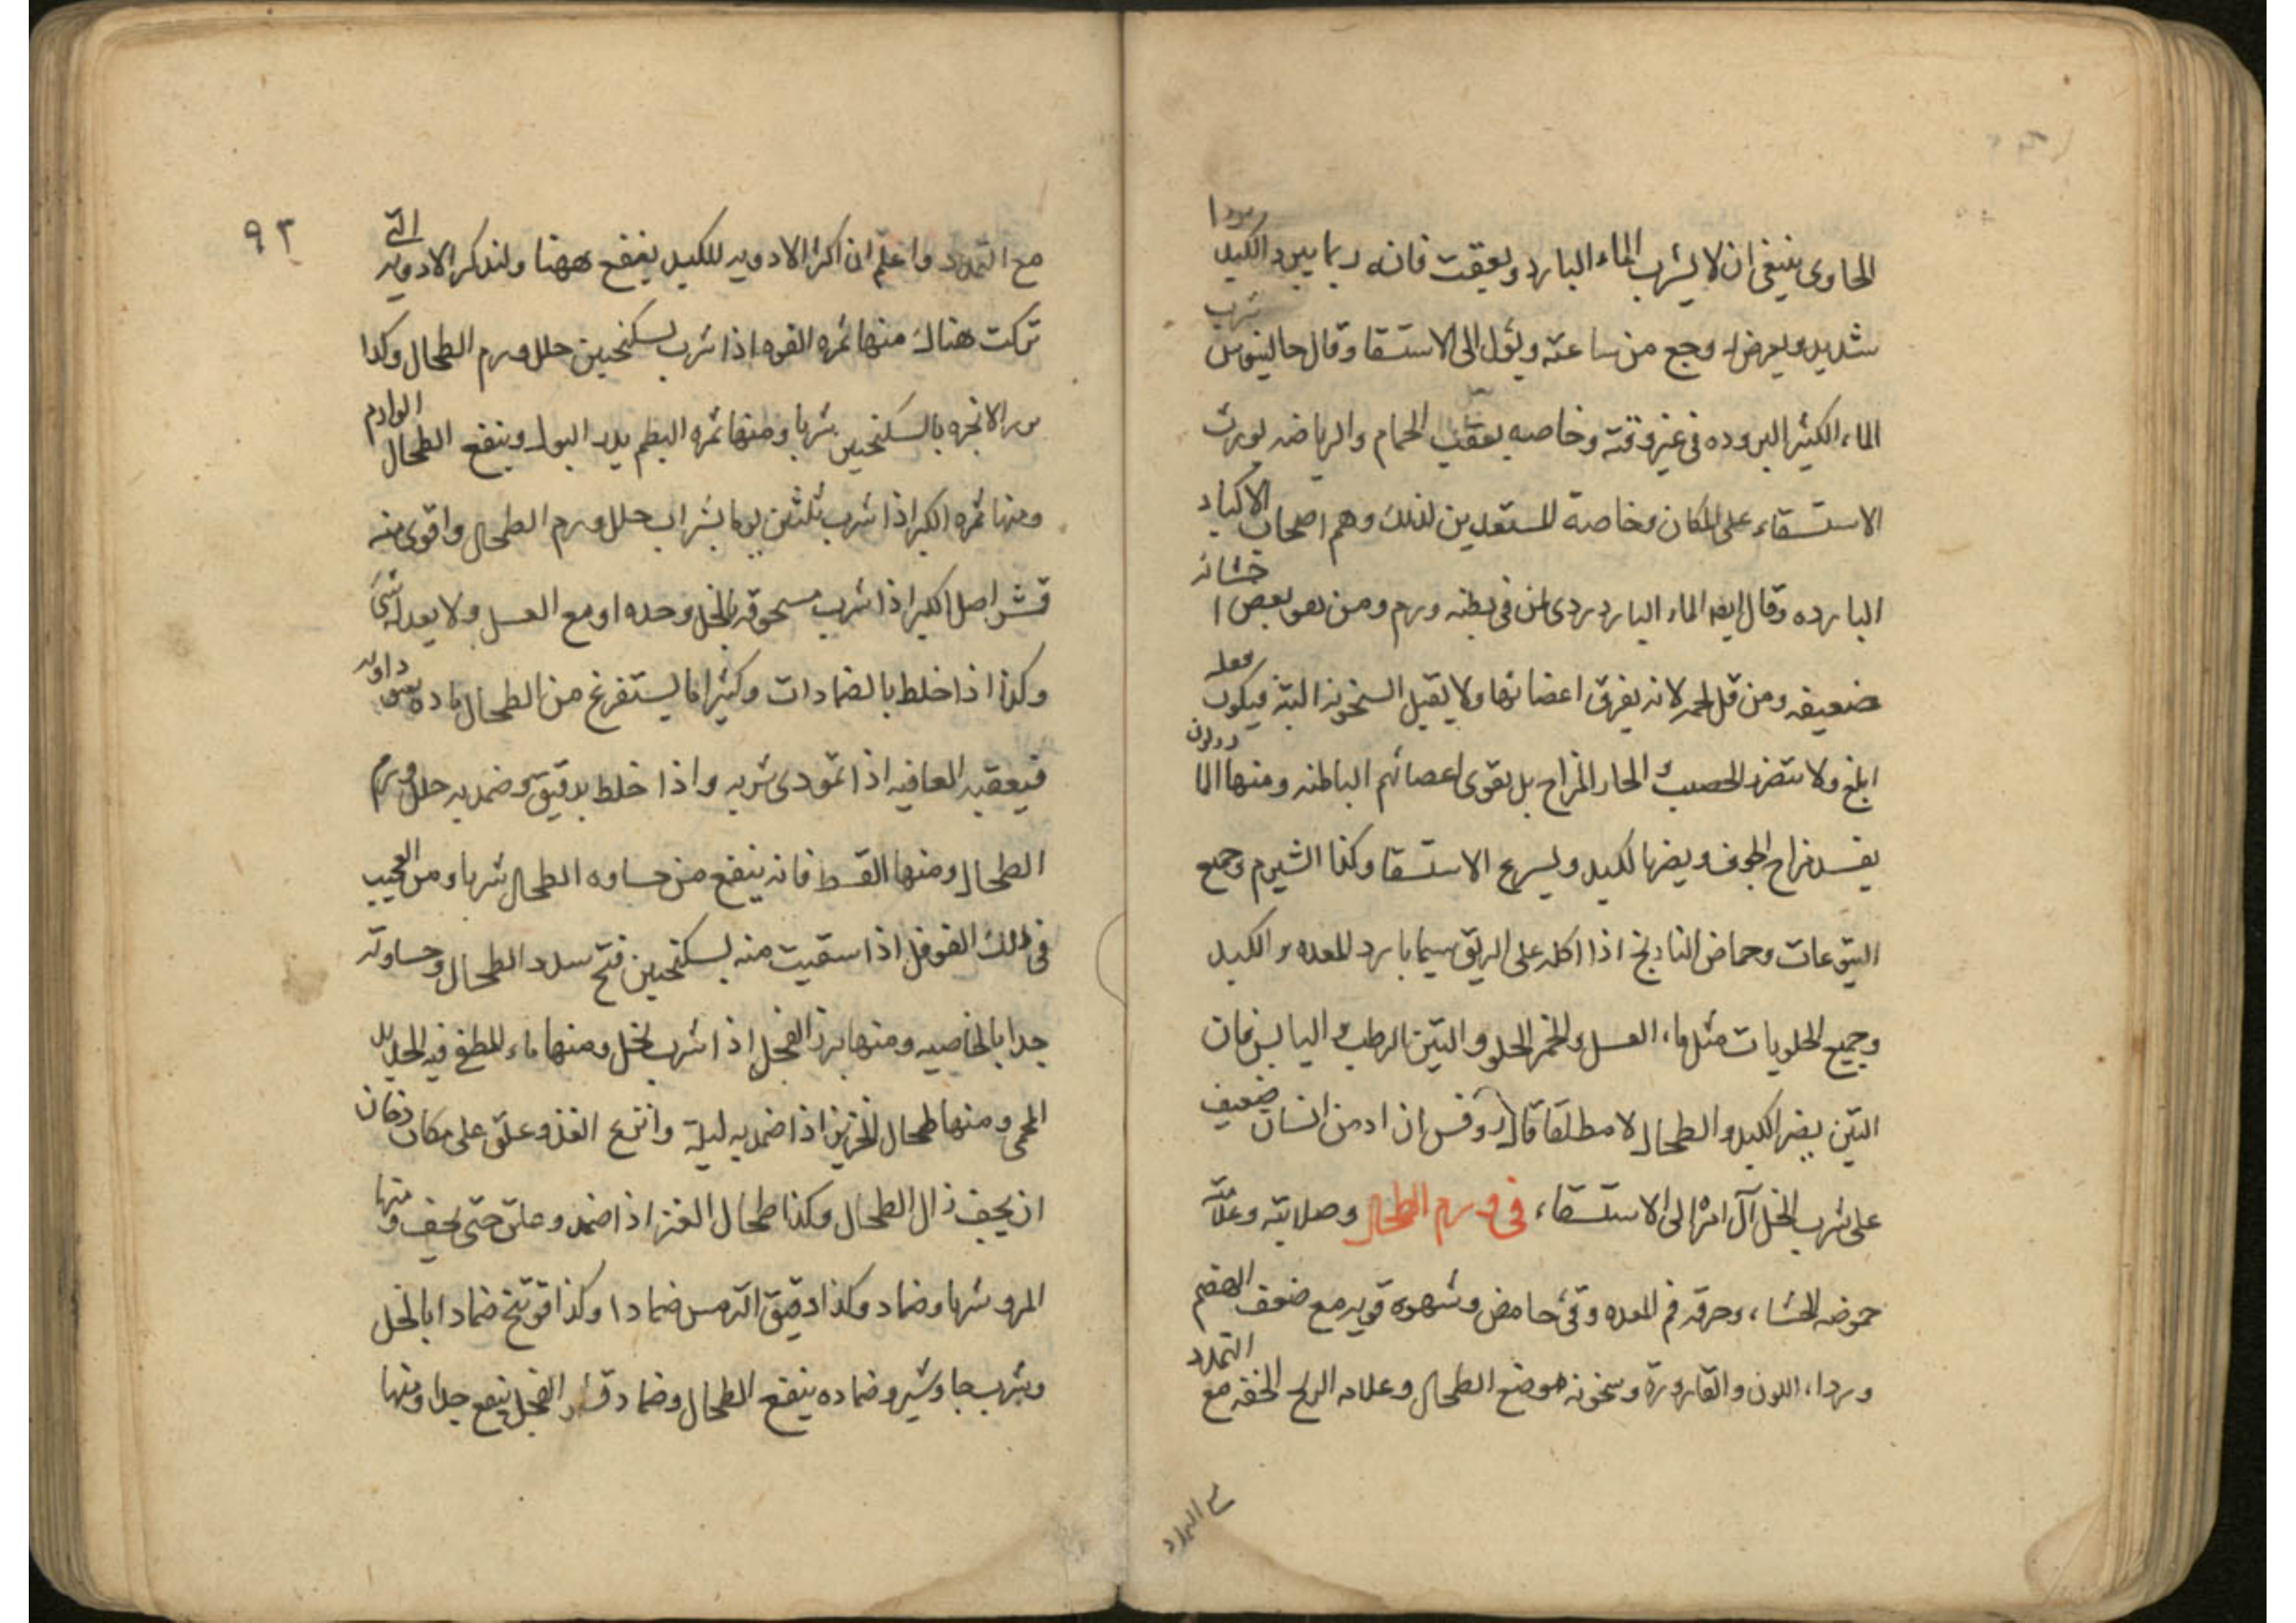 الحاوى ينبغى ان لا يشرب الماء البارد وبعقب فانه ربما يبرد الكبد بردا
شديد ويعرض له وجع من ساعته ويؤل الى الاستسقا وقال جالينوس شرب
الماء الكثير البروده فى غير وقته وخاصه بعقب الحمام والرياضه يورث
الاستسقاء على المكان وخاصة للمستعدين لذلك وهم اصحاب الاكباد
البارده وقال ايضا الماء البارد ردى لمن فى بطنه ورم ومن هو بعض احشائه
ضعيفه ومن قل لحمه لانه يفرق اعضائها ولا يقبل السخونه البتة فيكون فعله
ابلغ ولا يتضرر الخصب الحار المزاج بل يقوى اعضائهم الباطنه ومنها الما
يفسد مزاج الجوف ويضر بالكبد ويسرع الاستسقا وكذا الشيرم وجميع
اليتوعات وحماض النارنج اذا اكله على الريق سيما بارد المعده والكبد
وجميع الحلويات مثل ماء العسل والخمر الحلو والتين الرطب واليابس فان
التين يضر الكبد والطحال لا مطلقا قال روفس ان ادمن انسان ضعيف
على شرب الخل آل امره الى الاستسقاء فى ورم الطحال وصلابته وعلامته
حموضه الجشاء وحرقه فم المعده وقئ حامض وشهوه قويه مع ضعف الهضم
ورداءه اللون والقاروره وسخونه موضع الطحال وعلامه الريح الخفه مع التمدد
مع التمدد
٩٣
مع التمدد واعلم ان اكثر الادويه للكبد ينفع ههنا ولنذكر الادويه التى
تركت هناك منها ثمره الفوه اذا شرب بسكنجبين حلل ورم الطحال وكذا
بزر الانجره بالسكنجبين شربا ومنها ثمره البطم يدر البول وينفع الطحال الوارم
ومنها ثمره الكبر اذا شرب ثلثين يوما بشراب حلل ورم الطحال واقوى منه
قشر اصل الكبر اذا شرب مسحوقه بالخل وحده او مع العسل ولا يعدله شئ
وكذا اذا خلط بالضمادات وكثيرا ما يستفرغ من الطحال ماده
فيعقبه العافيه اذا تمودى شربه واذا خلط بدقيق وضمد به حلل ورم
الطحال ومنها القسط فانه ينفع من جساوه الطحال شربا ومن العجيب
فى ذلك الفوفل اذا سقيت منه بسكنجبين فتح سدد الطحال وجساوته
جدا بالخاصيه ومنها بزر الفجل اذا شرب بخل ومنها ماء المطفى فيه الحديد
المحمى ومنها طحال الخنزير اذا ضمد به ليلة وانتزع الغد وعلق على مكان دخان
ان يجف ذال الطحال وكذا طحال العنز اذا ضمد وعلق حتى يجف ومنها
المرو شربا وضماد وكذا دقيق الترمس ضمادا وكذا فوتنج ضمادا بالخل
وبشرب جاوشير وضماده ينفع الطحال وضماد قشر الفجل ينفع جدا ومنها